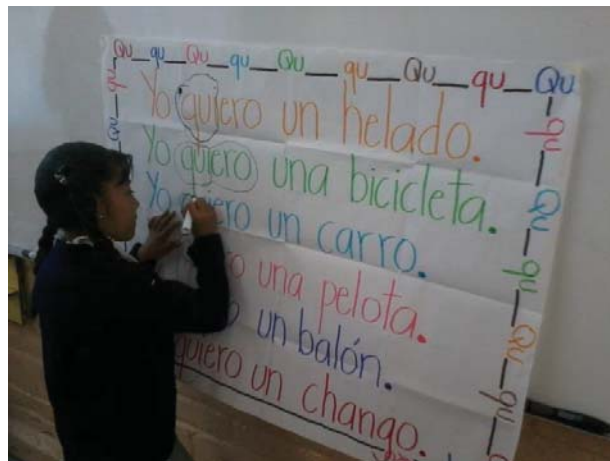 Qu qu Qu qu Qu qu Qu qu Qu
Yo quiero un helado.
Yo quiero una bicicleta.
Yo quiero un carro.
una pelota.
un balón.
quiero un chango.
qu
Qu
qu
Qu
qu
Qu
qu